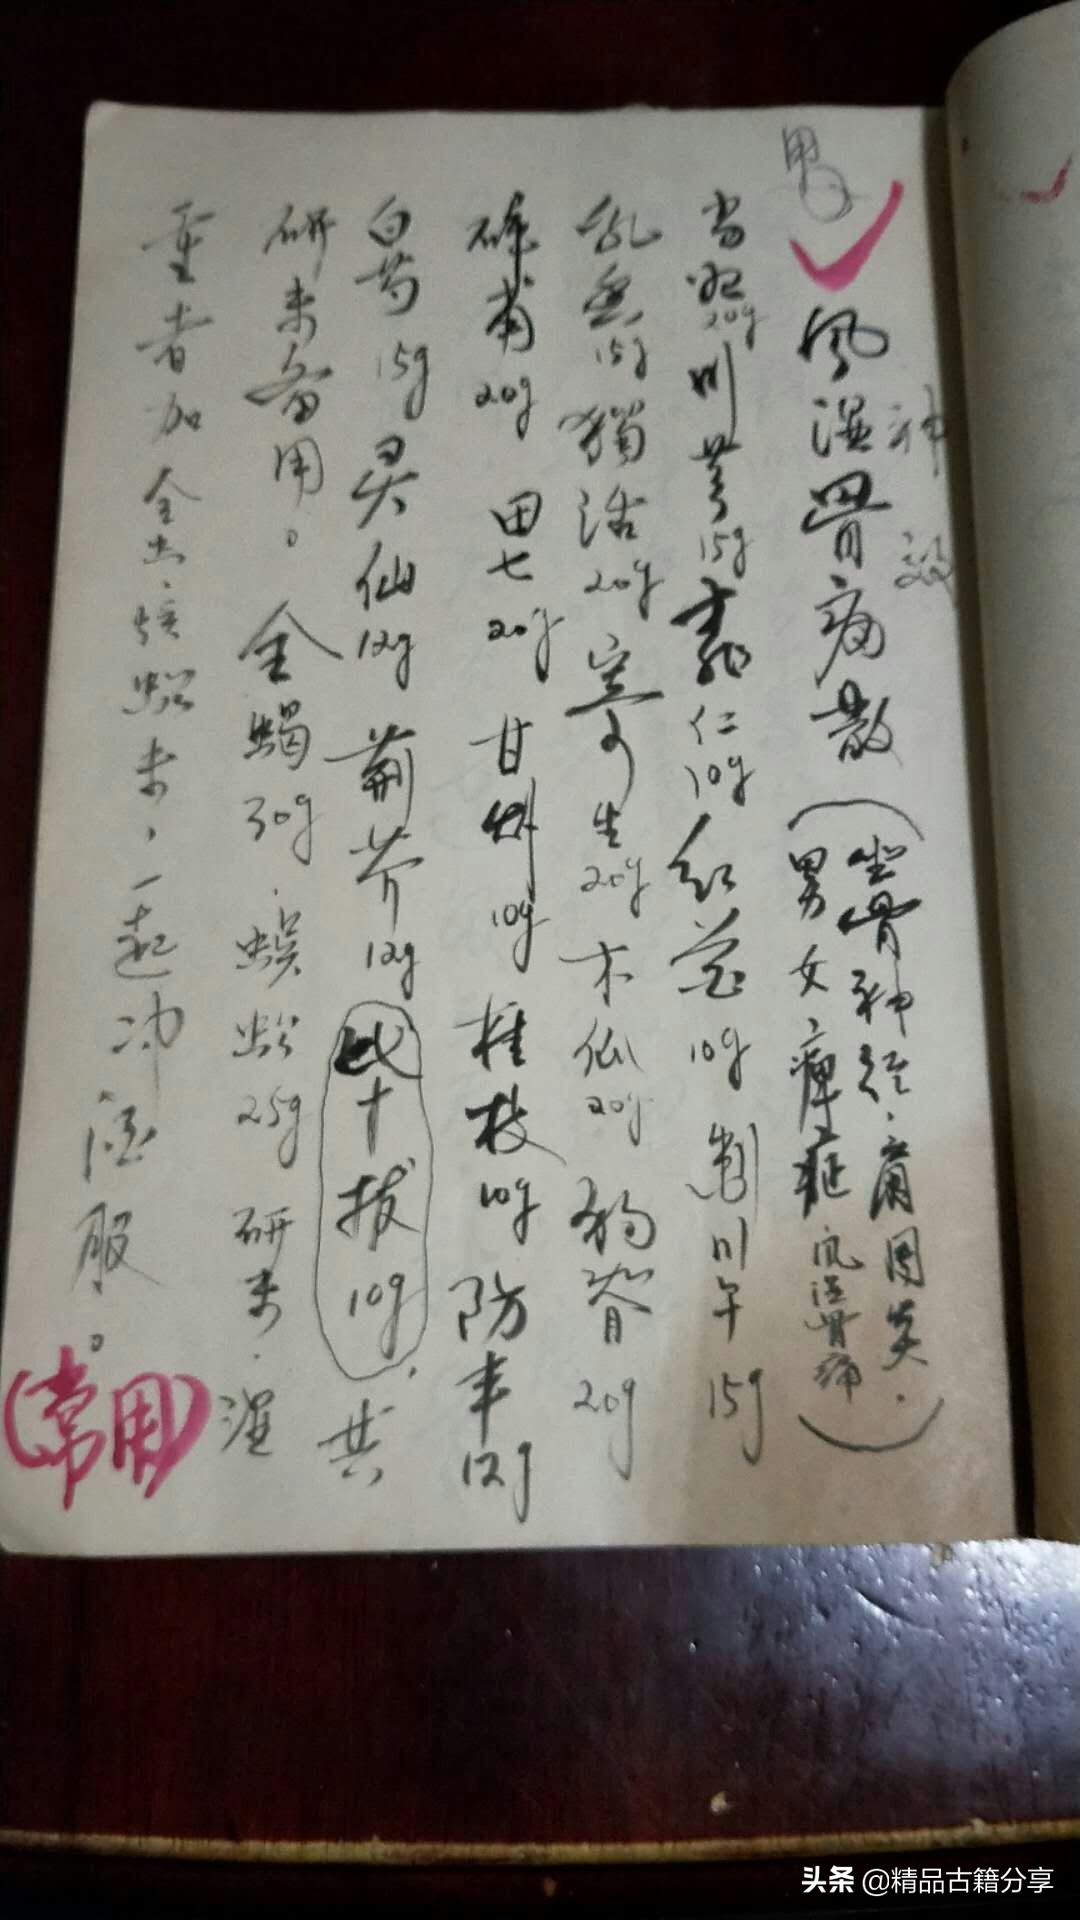 男
神效
风湿骨病散（坐骨神经、肩周炎、
男女痹症 风湿骨痛）
当归20g 川芎15g 桃仁10g 红花10g 制川午15g
乳没15g 獨活20g 寄生20g 木瓜20g 狗脊20g
20g 田七20g 甘草10g 桂枝10g 防丰12g
白芍15g 灵仙12g 荊芥12g 十拔10g、共
研末备用。全蝎30g、蜈蚣25g 研末、湿
重者加全虫、蜈蚣末，一起冲酒服。
(常用)
头条 @精品古籍分享